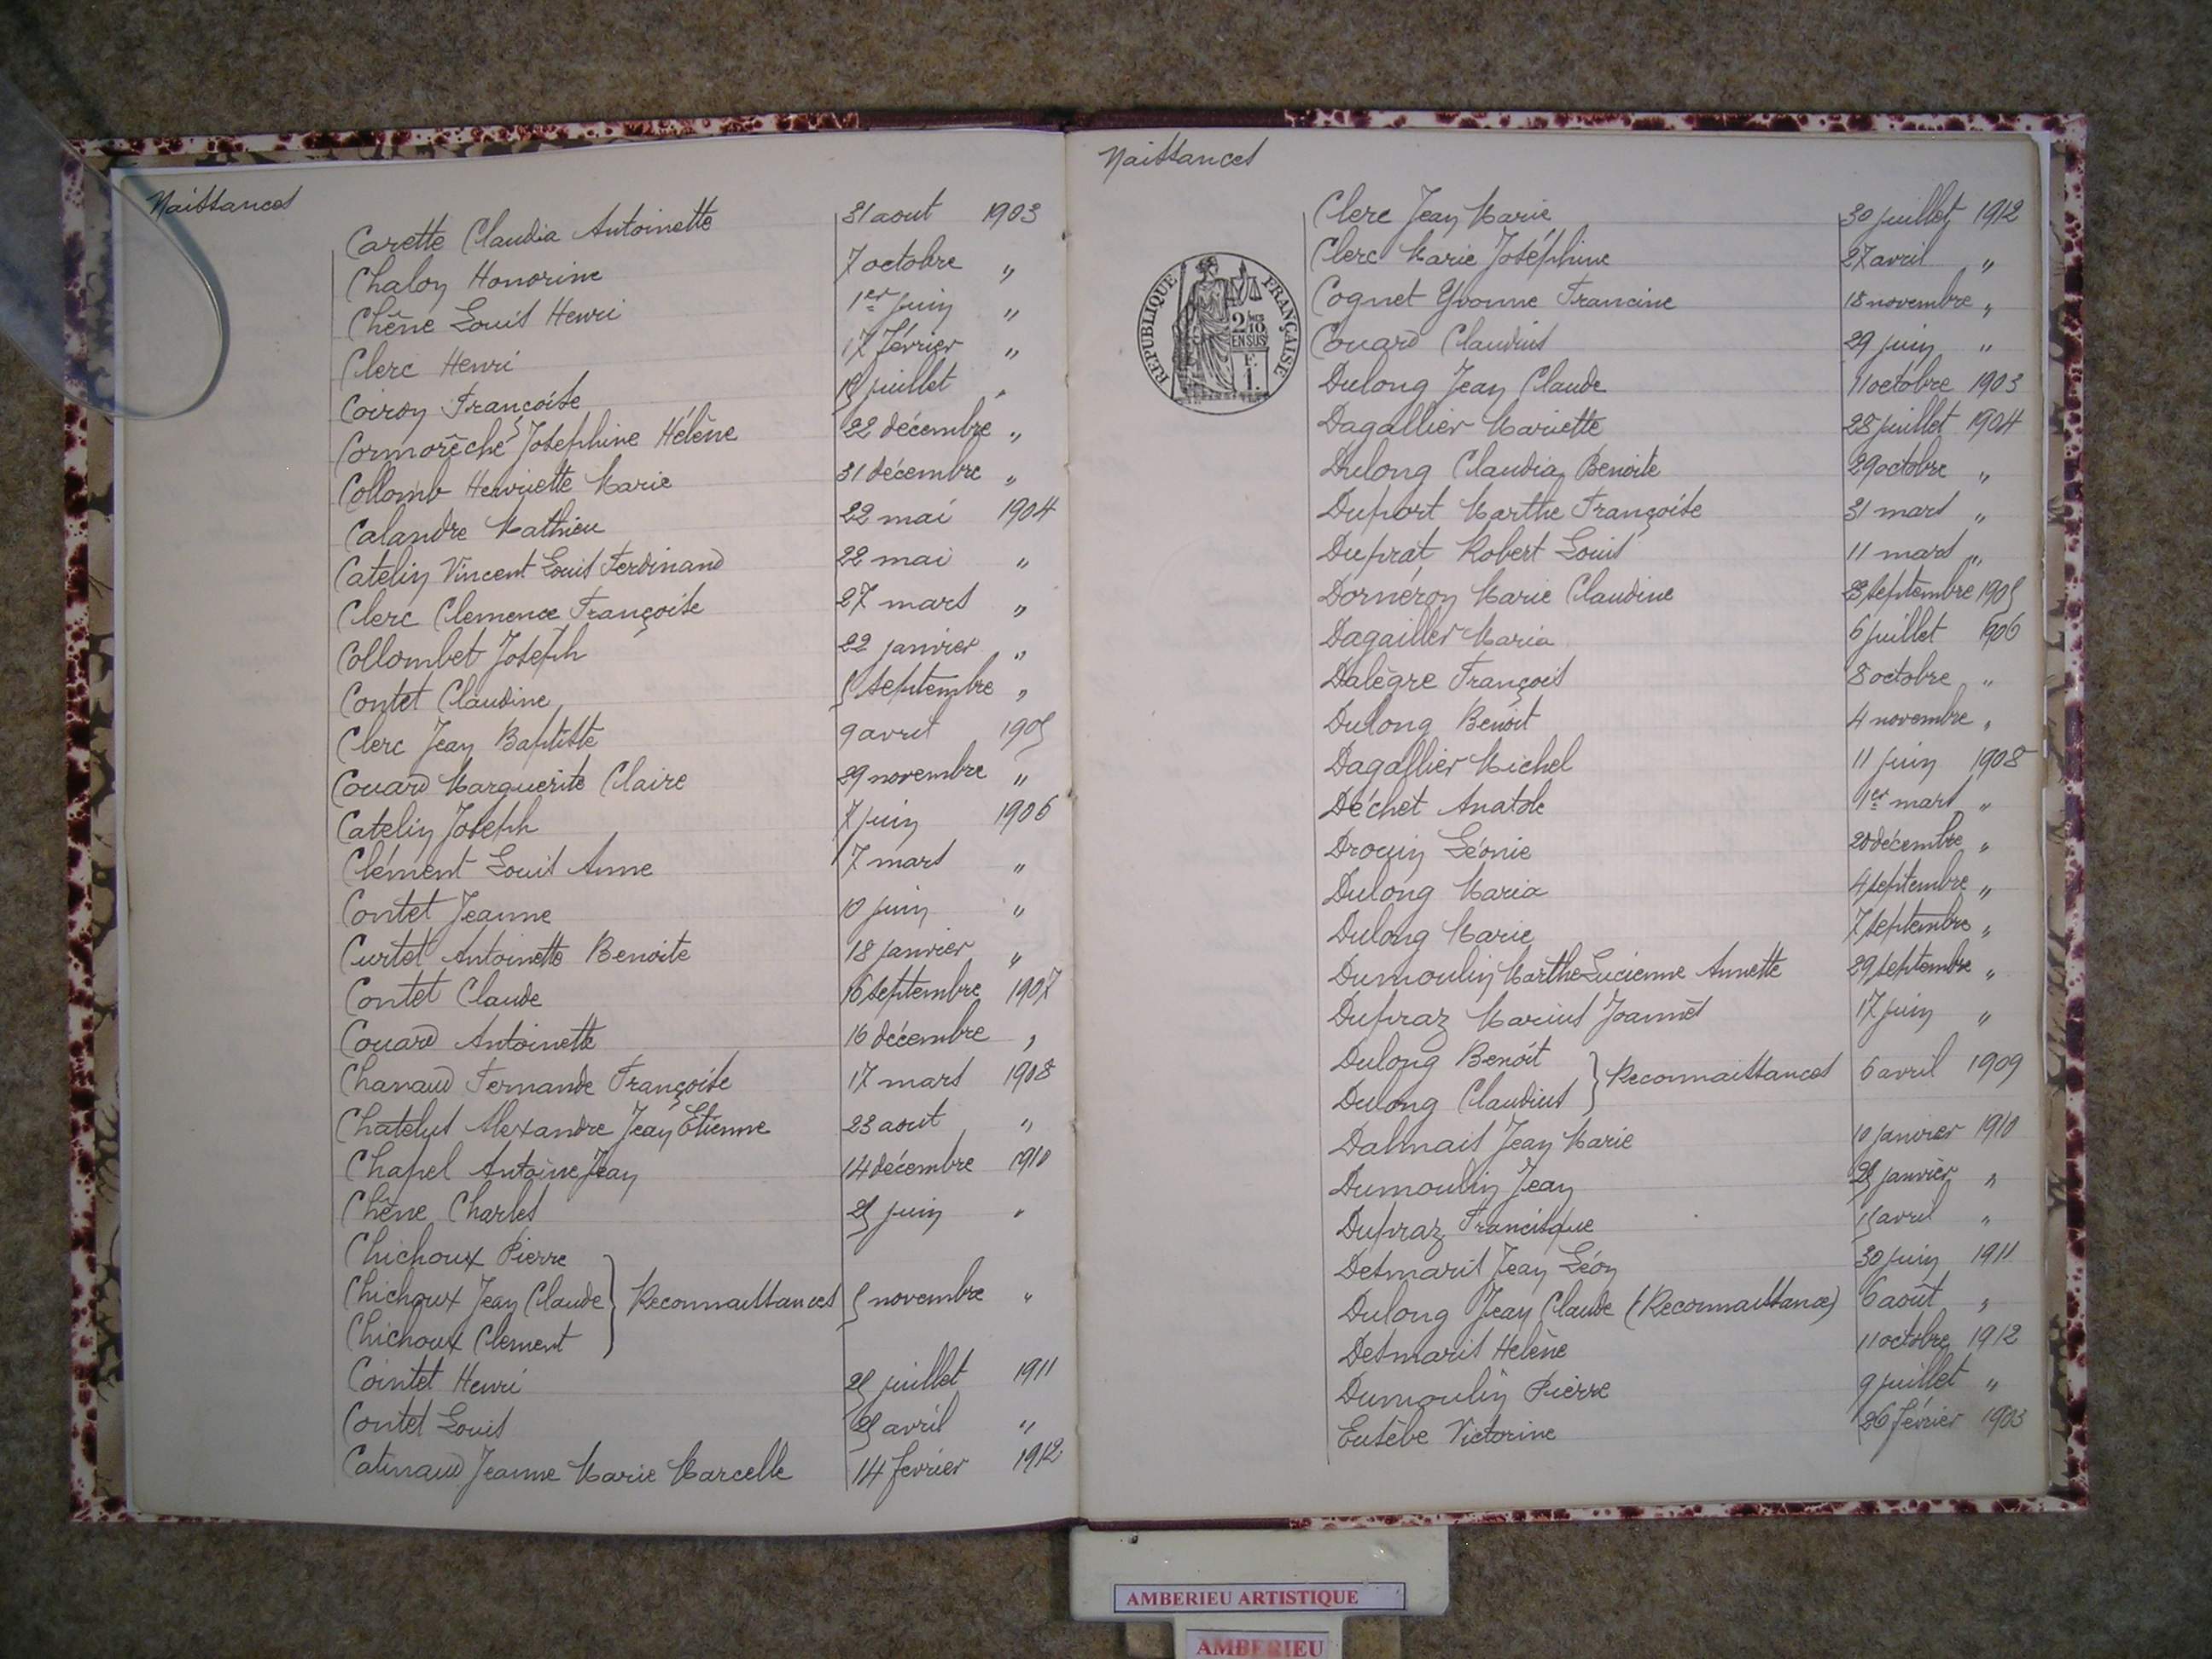 Naissances
Carette Claudia Antoinette 31 aout 1903
Chalon Honorine 7 octobre "
Chêne Louis Henri 1er juin "
Clerc Henri 17 février "
Coiron Françoise 15 juillet "
Cormorèche Josephine Hélène 22 décembre "
Collomb Henriette Marie 31 décembre "
Calandre Mathieu 22 mai 1904
Catelin Vincent Louis Ferdinand 22 mai "
Clerc Clemence Françoise 27 mars "
Collombet Joseph 22 janvier "
Contet Claudine 5 septembre "
Clerc Jean Baptiste 9 avril 1905
Couard Marguerite Claire 29 novembre "
Catelin Joseph 7 juin 1906
Clément Louis Anne 7 mars "
Contet Jeanne 10 juin "
Curtet Antoinette Benoite 18 janvier "
Contet Claude 16 septembre 1907
Couard Antoinette 16 décembre "
Chanaud Fernande Françoise 17 mars 1908
Chatelus Alexandre Jean Etienne 23 aout "
Chapel Antoine Jean 14 décembre 1910
Chêne Charles 25 juin "
Chichoux Pierre
Chichoux Jean Claude } Reconnaissances 5 novembre "
Chichoux Clement
Cointet Henri 25 juillet 1911
Contet Louis 25 avril "
Catinaud Jeanne Marie Marcelle 14 fevrier 1912
Naissances
REPUBLIQUE FRANÇAISE
2/10
EN SUS
F.
1.
Clerc Jean Marie 30 juillet 1912
Clerc Marie Joséphine 27 avril "
Cognet Yvonne Francine 18 novembre "
Couard Claudius 29 juin "
Dulong Jean Claude 11 octobre 1903
Dagallier Mariette 28 juillet 1904
Dulong Claudia Benoite 29 octobre "
Duport Marthe Françoise 31 mars "
Duprat Robert Louis 11 mars "
Dornéron Marie Claudine 23 septembre 1905
Dagailler Maria 6 juillet 1906
Dalègre François 8 octobre "
Dulong Benoit 4 novembre "
Dagallier Michel 11 juin 1908
Déchet Anatole 1er mars "
Drouin Léonie 20 décembre "
Dulong Maria 4 septembre "
Dulong Marie 7 septembre "
Dumoulin Marthe Lucienne Annette 29 septembre "
Dupraz Marius Joannès 17 juin "
Dulong Benoit } Reconnaissances 6 avril 1909
Dulong Claudius
Dalmais Jean Marie 10 janvier 1910
Dumoulin Jean 25 janvier "
Dupraz Francisque 15 avril "
Desmaris Jean Léon 30 juin 1911
Dulong Jean Claude (Reconnaissance) 6 août "
Desmaris Helène 11 octobre 1912
Dumoulin Pierre 9 juillet "
Eusèbe Victorine 26 février 1903
AMBERIEU ARTISTIQUE
AMBERIEU